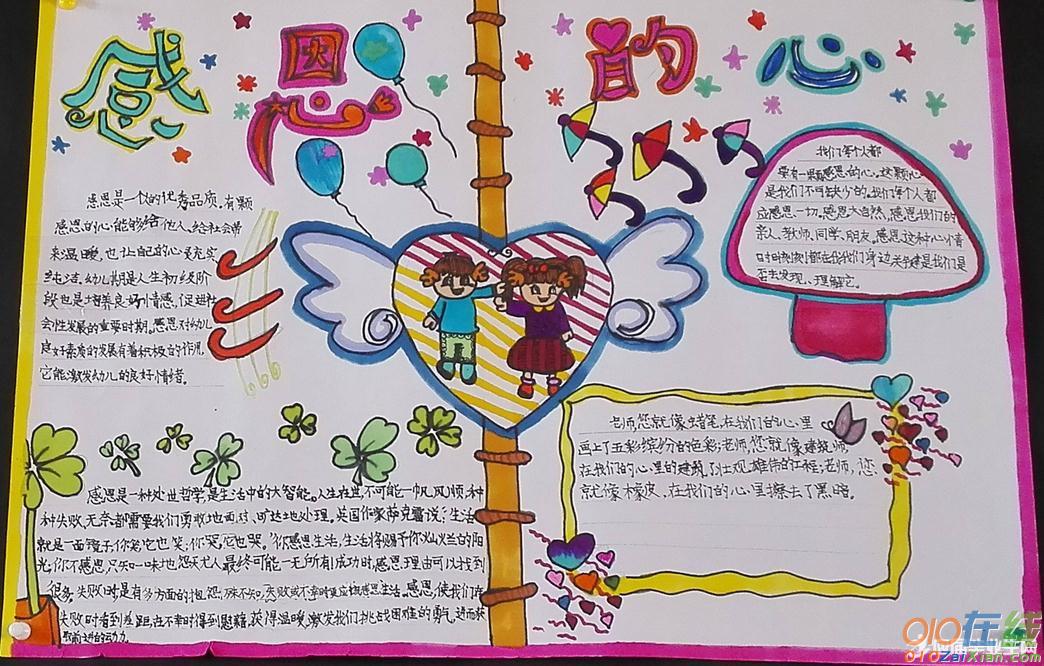 感恩的心
感恩是一份的优秀品质。有颗
感恩的心,能够给他人、给社会带
来温暖,也让自己的心灵充实
纯洁。幼儿期是人生初级阶
段也是培养良好情感、促进社
会性发展的重要时期。感恩对幼儿
良好素质的发展有着积极的作用,
它能激发幼儿的良好情绪。
我们每个人都
要有一颗感恩的心。这颗心
是我们不可缺少的。我们每个人都
应感恩一切。感恩大自然,感恩我们的
亲人、教师、同学、朋友。感恩这种心情
时时刻刻都在我们身边关键是我们是
否去发现、理解它。
老师,您就像蜡笔,在我们的心里
画上了五彩缤纷的色彩;老师,您就像建筑师,
在我们的心里的建筑了壮观雄伟的工程;老师,您
就像橡皮、在我们的心里擦去了黑暗。
感恩是一种处世哲学,是生活中的大智能。人生在世,不可能一帆风顺,种
种失败、无奈都需要我们勇敢地面对、旷达地处理。英国作家萨克雷说:“生活
就是一面镜子,你笑,它也笑;你哭,它也哭。”你感恩生活,生活将赐予你灿烂的阳
光;你不感恩,只知一味地怨天尤人,最终可能一无所有!成功时,感恩理由可以找到
很多;失败时是有多方面的,殊不知,失败或不幸时更应该感恩生活。感恩,使我们在
失败时看到差距,在不幸时得到慰藉,获得温暖,激发我们挑战困难的勇气,进而获
取前进的动力。
010在线
010zaixian.com